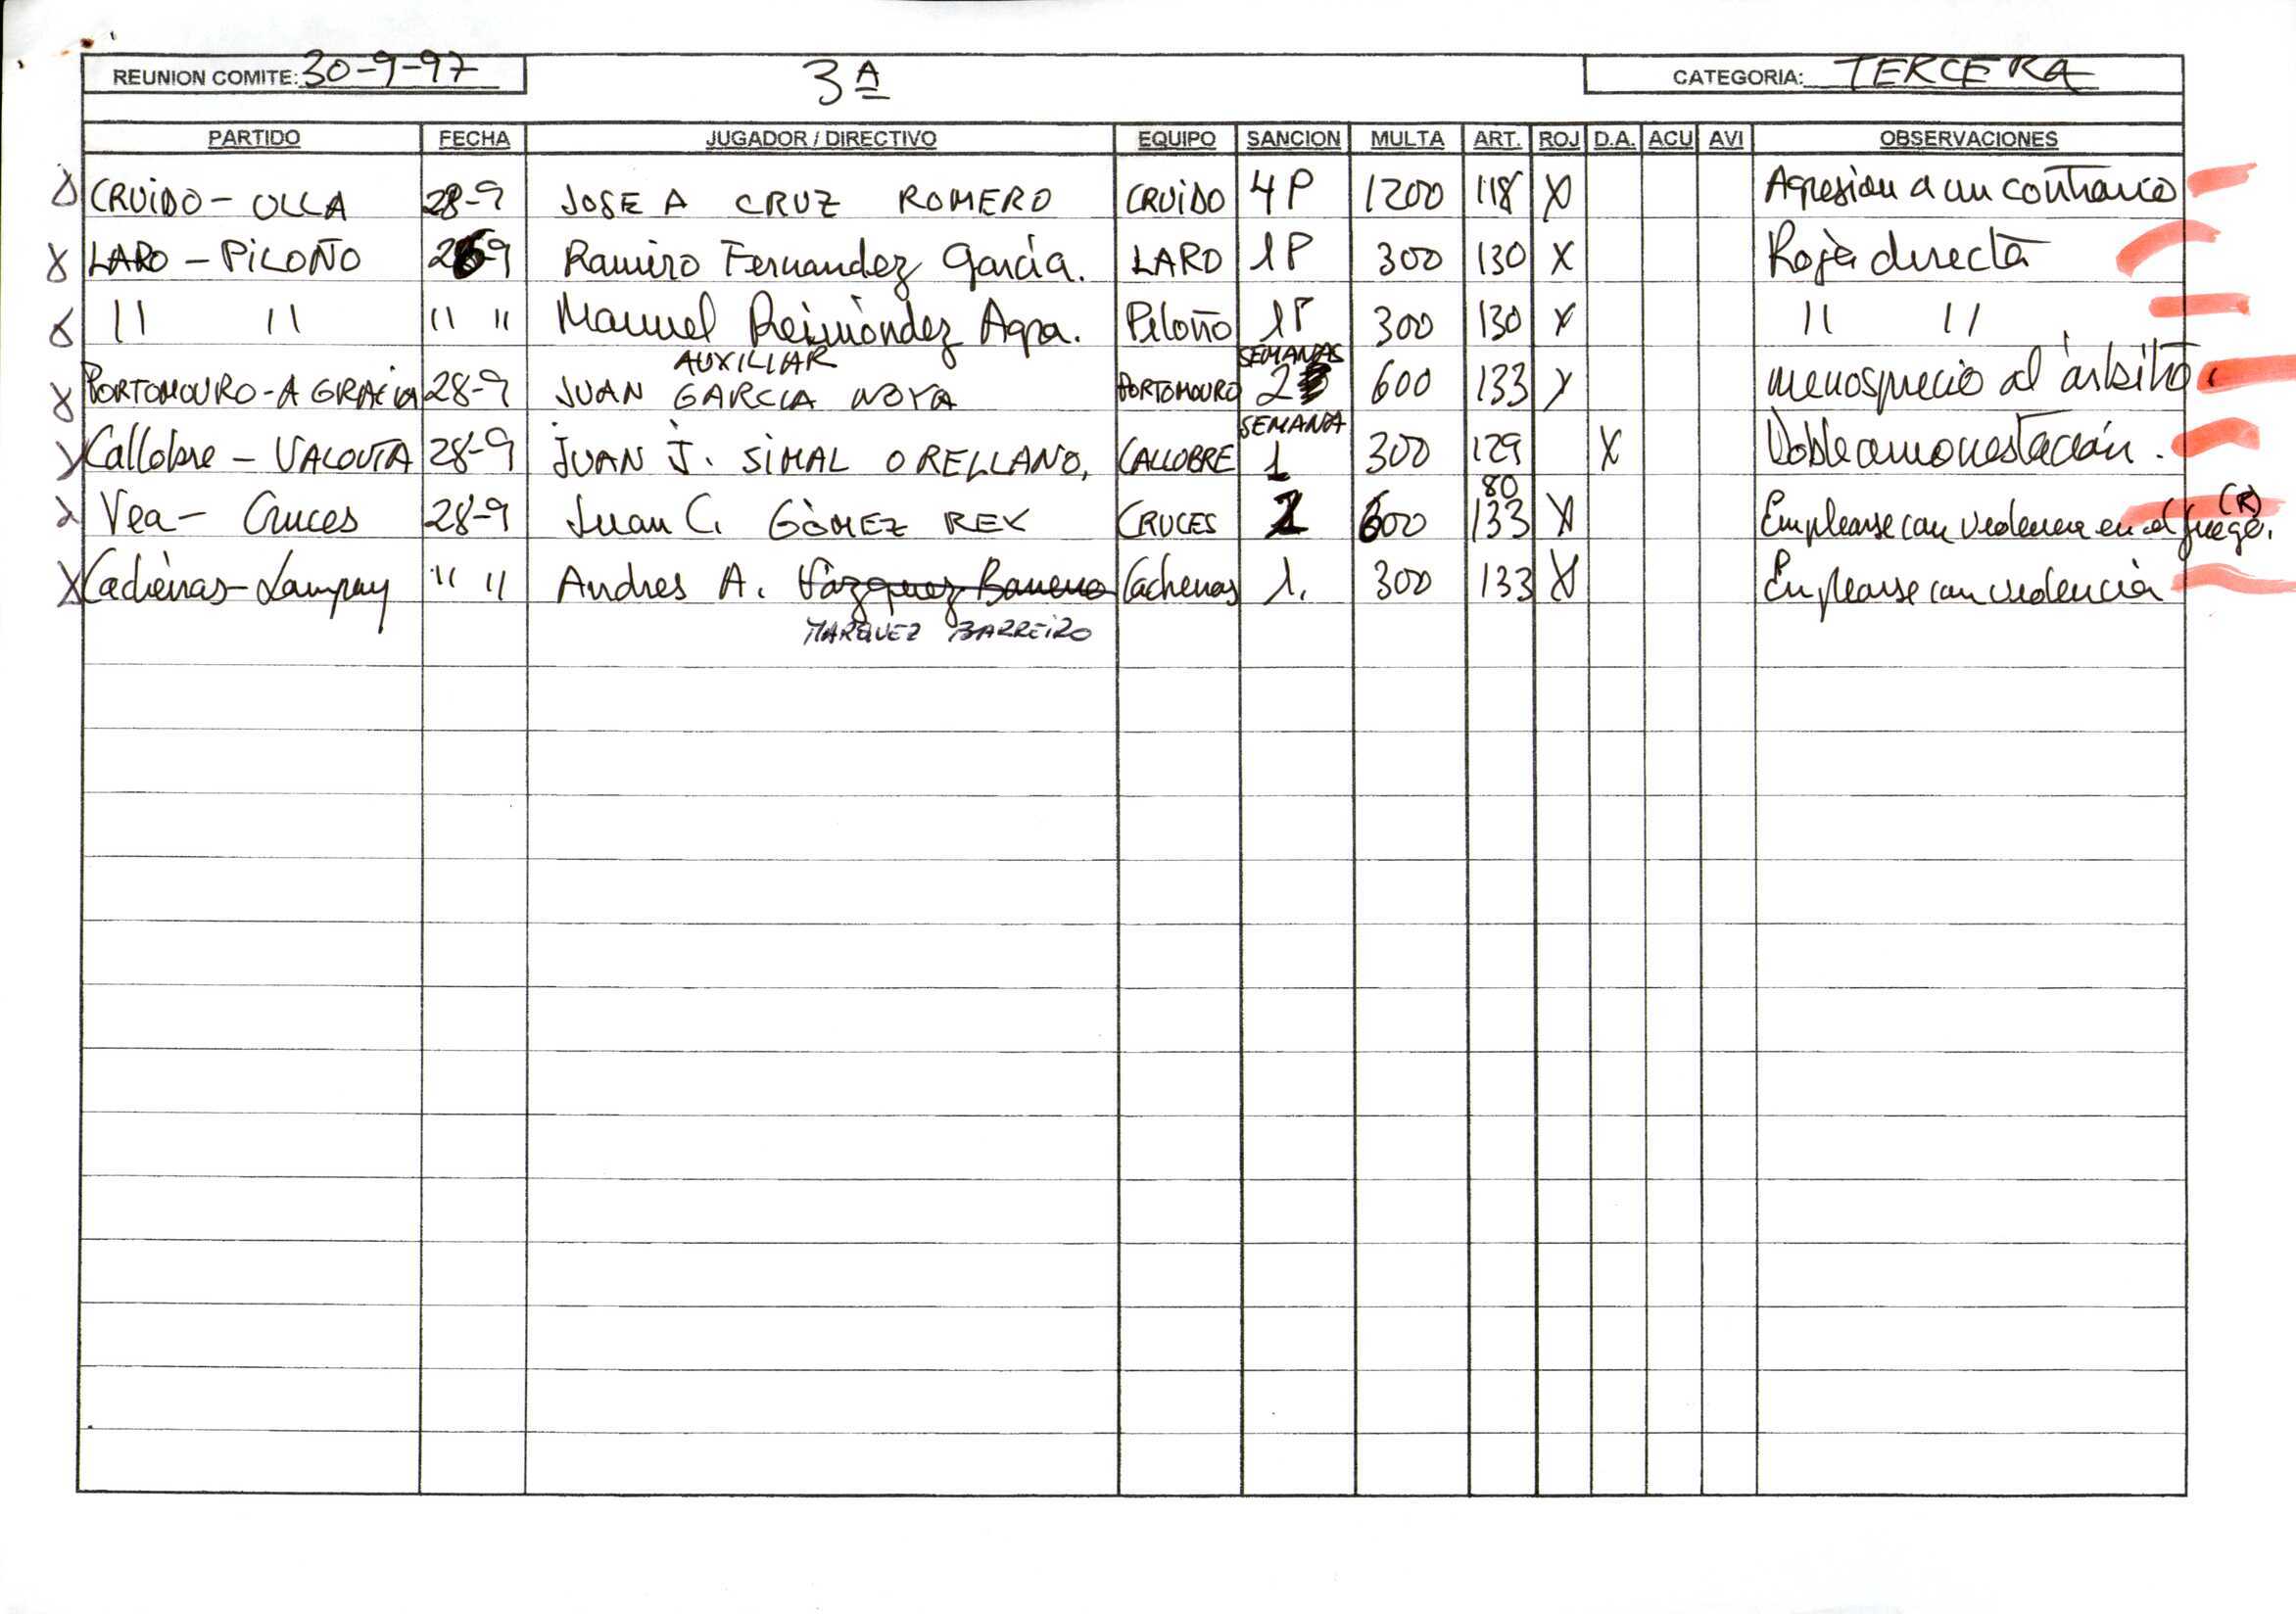 REUNION COMITE: 30-9-97 3ª CATEGORIA: TERCERA
PARTIDO FECHA JUGADOR / DIRECTIVO EQUIPO SANCION MULTA ART. ROJ D.A. ACU AVI OBSERVACIONES
CRUÍDO - ULLA 28-9 JOSE A CRUZ ROMERO CRUÍDO 4 P 1200 118 X Agresion a un contrario
LARO - PILOÑO 28-9 Ramiro Fernandez García. LARO 1P 300 130 X Roja directa
" " " " Manuel Reimóndez Agra. Piloño 1P 300 130 X " "
AUXILIAR SEMANAS
PORTOMOURO - A GRACIA 28-9 JUAN GARCIA NOYA PORTOMOURO 2 600 133 X menosprecio al árbitro.
SEMANA
Callobre - VALOUTA 28-9 JUAN J. SIMAL ORELLANO, CALLOBRE 1 300 129 X Doble amonestación.
80 (R)
Vea - Cruces 28-9 Juan C. GÓMEZ REY CRUCES 2 600 133 X Emplearse con violencia en el juego.
Cacheiras - Lampay " " Andres A. Vázquez Barreiro Cacheiras 1. 300 133 X Emplearse con violencia
MARQUEZ BARREIRO